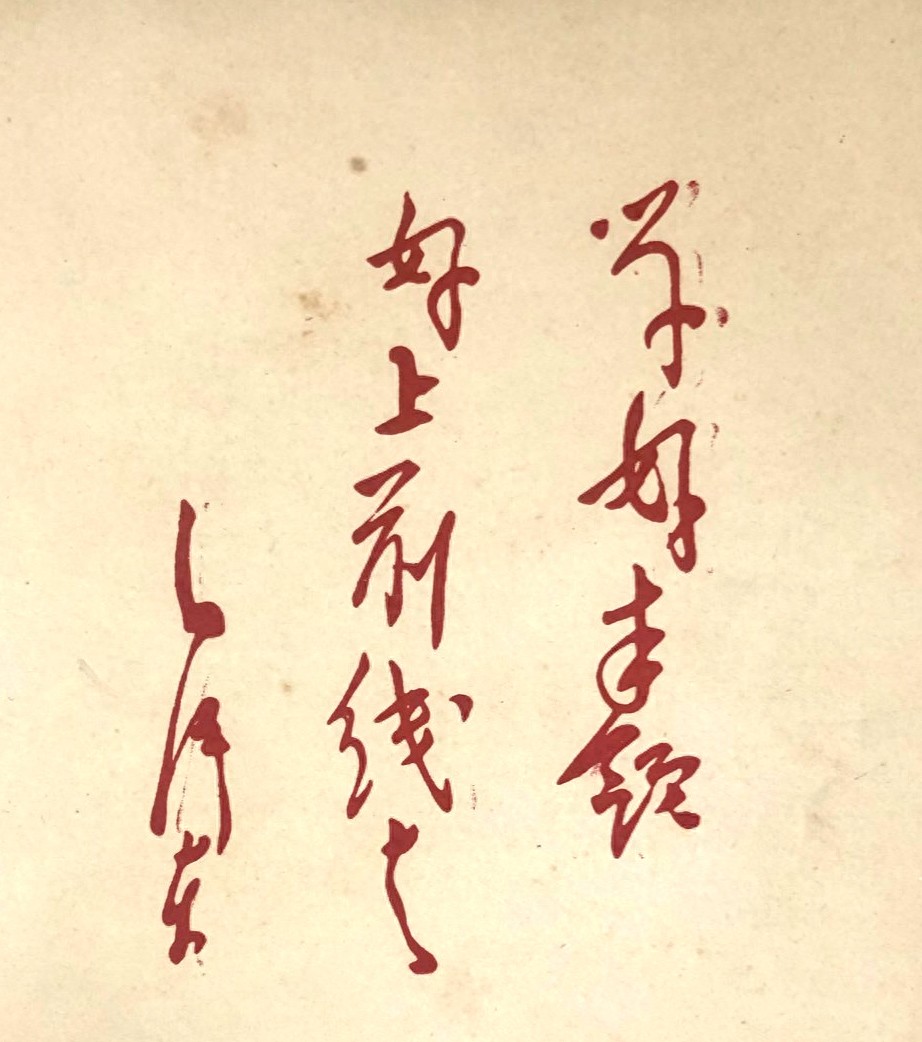 学好本领
好上前线去
毛泽东